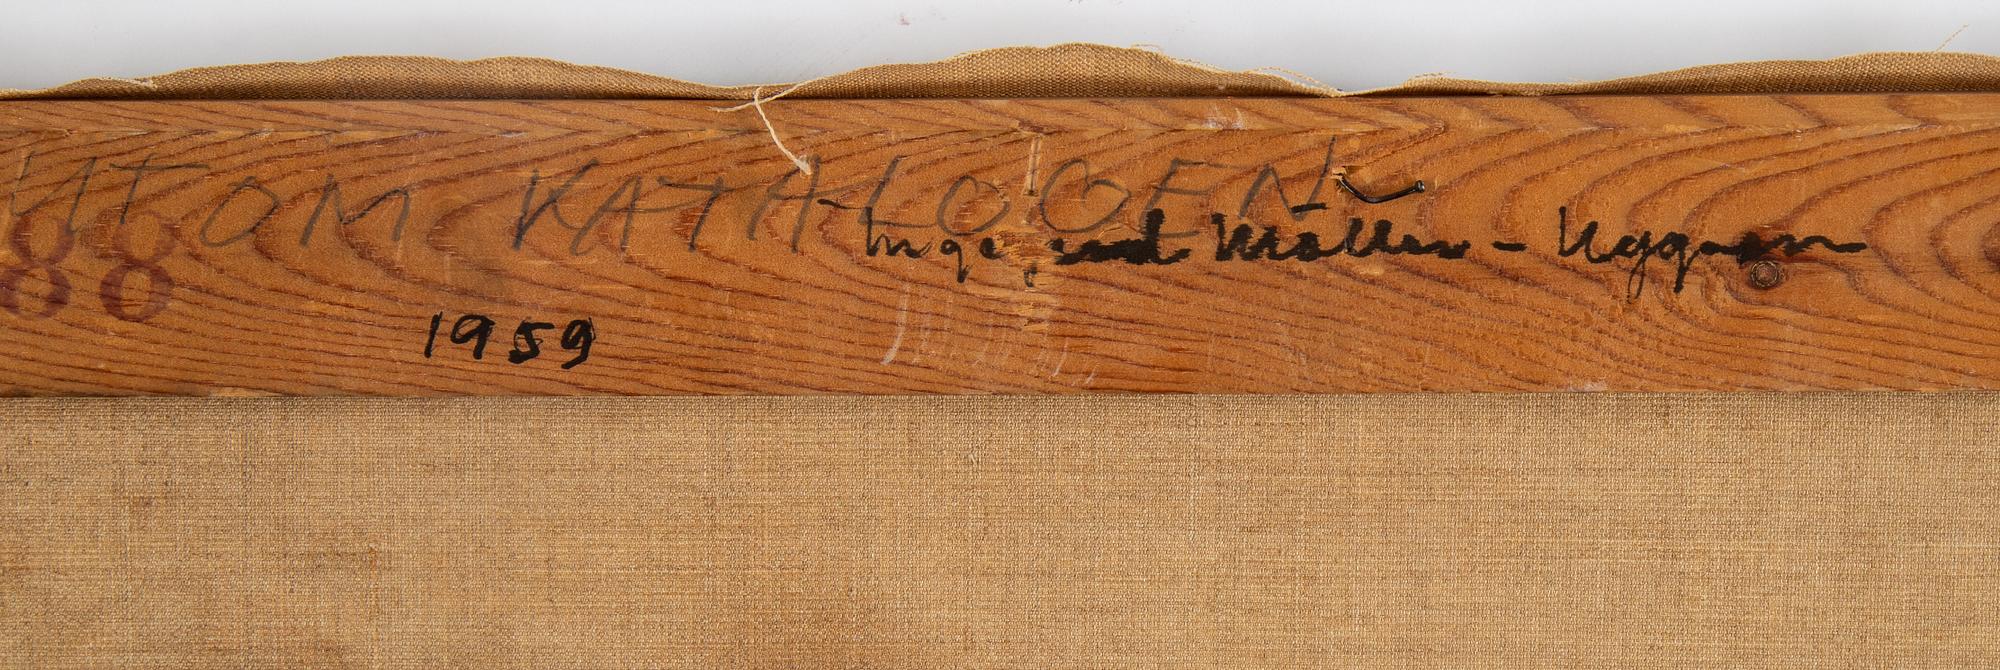 UTOM KATALOGEN
Ingegerd Möller - Nyqren
88
1959